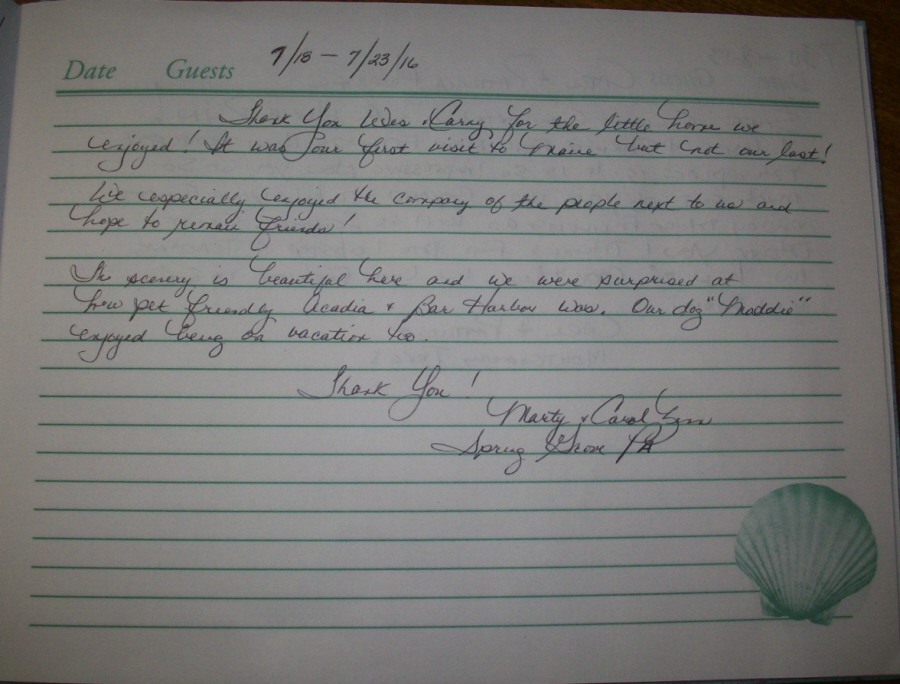 Date Guests 7/18 - 7/23/16
Thank You & for the little home we
enjoyed! It was our first visit to Maine but not our last!
We especially enjoyed the company of the people next to us and
hope to remain friends!
The scenery is beautiful here and we were surprised at
how pet friendly Acadia & Bar Harbor was. Our dog "Maddie"
enjoyed being on vacation too.
Thank You!
Marty & Carol
Spring Grove PA